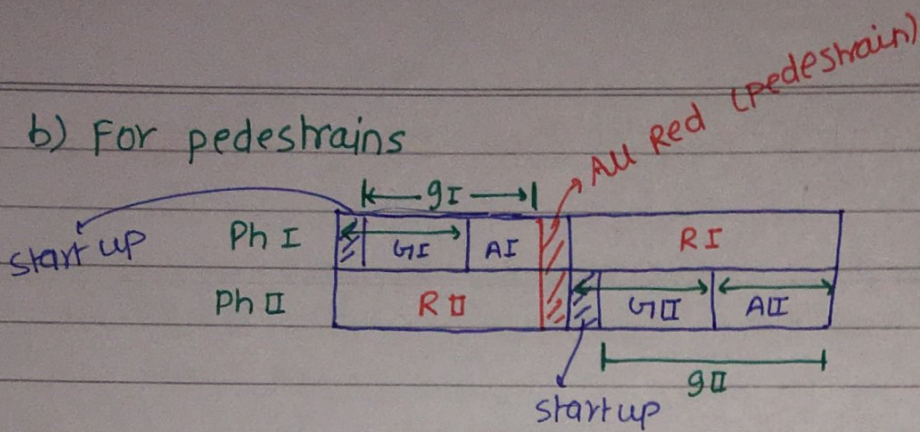 All Red (pedestrain)
b) For pedestrains
gI
start up
Ph I GI AI R I
Ph II R II GII AII
gII
startup